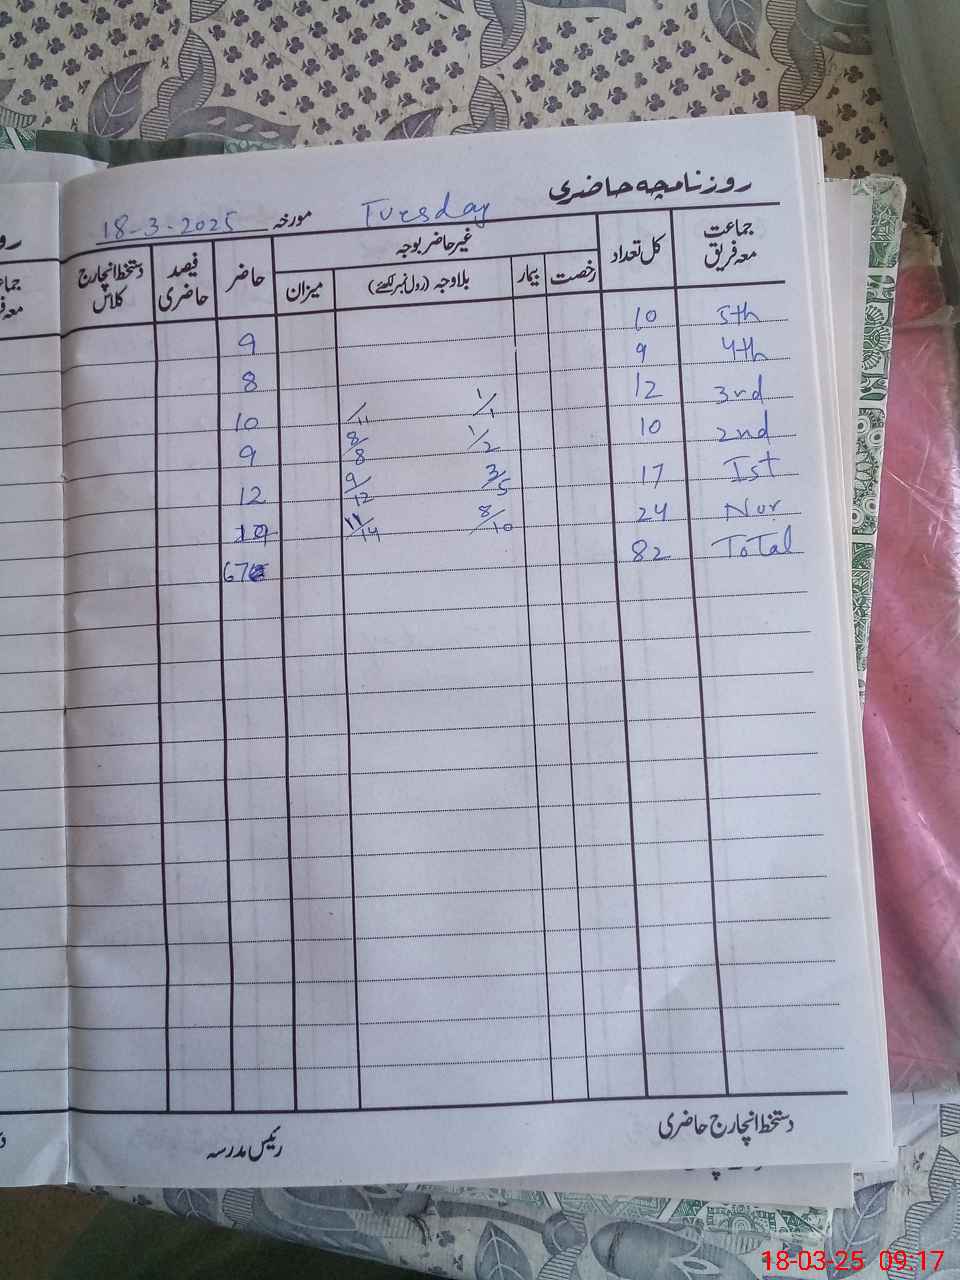 روزنامچہ حاضری
Tuesday مورخہ 18-3-2025
جماعت معہ فریق کل تعداد غیر حاضر بوجہ حاضر فیصد حاضری دستخط انچارج کلاس
رخصت بیمار بلاوجہ (رول نمبر لکھئے) میزان
5th 10 9
4th 9 8
3rd 12 1/1 /11 10
2nd 10 1/2 8/8 9
Ist 17 3/5 9/12 12
Nur 24 8/10 11/14 19
ToTal 82 67
دستخط انچارج حاضری
رئیس مدرسہ
18-03-25 09:17